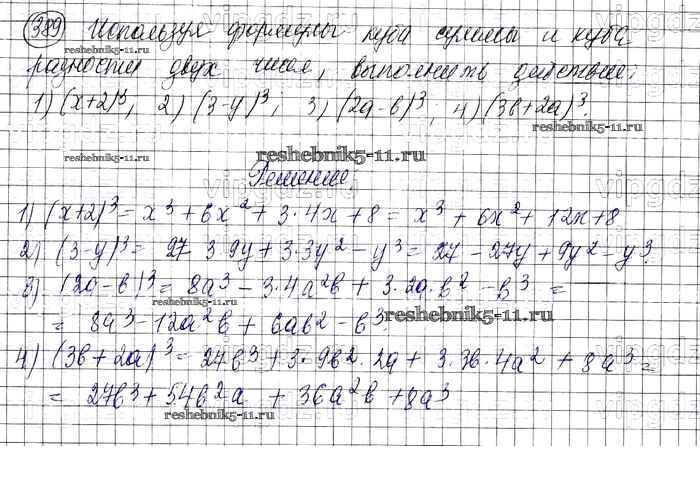 389 Используя формулы куба суммы и куба
разности двух чисел, выполнить действие:
1) (x+2)³, 2) (3-y)³, 3) (2a-b)³, 4) (3b+2a)³.
reshebnik5-11.ru
Решение:
1) (x+2)³ = x³ + 6x² + 3·4x + 8 = x³ + 6x² + 12x + 8
2) (3-y)³ = 27 3·9y + 3·3y² - y³ = 27 - 27y + 9y² - y³.
3) (2a-b)³ = 8a³ - 3·4a²b + 3·2a·b² - b³ =
= 8a³ - 12a²b + 6ab² - b³.
4) (3b+2a)³ = 27b³ + 3·9b²·2a + 3·3b·4a² + 8a³ =
= 27b³ + 54b²a + 36a²b + 8a³
reshebnik5-11.ru